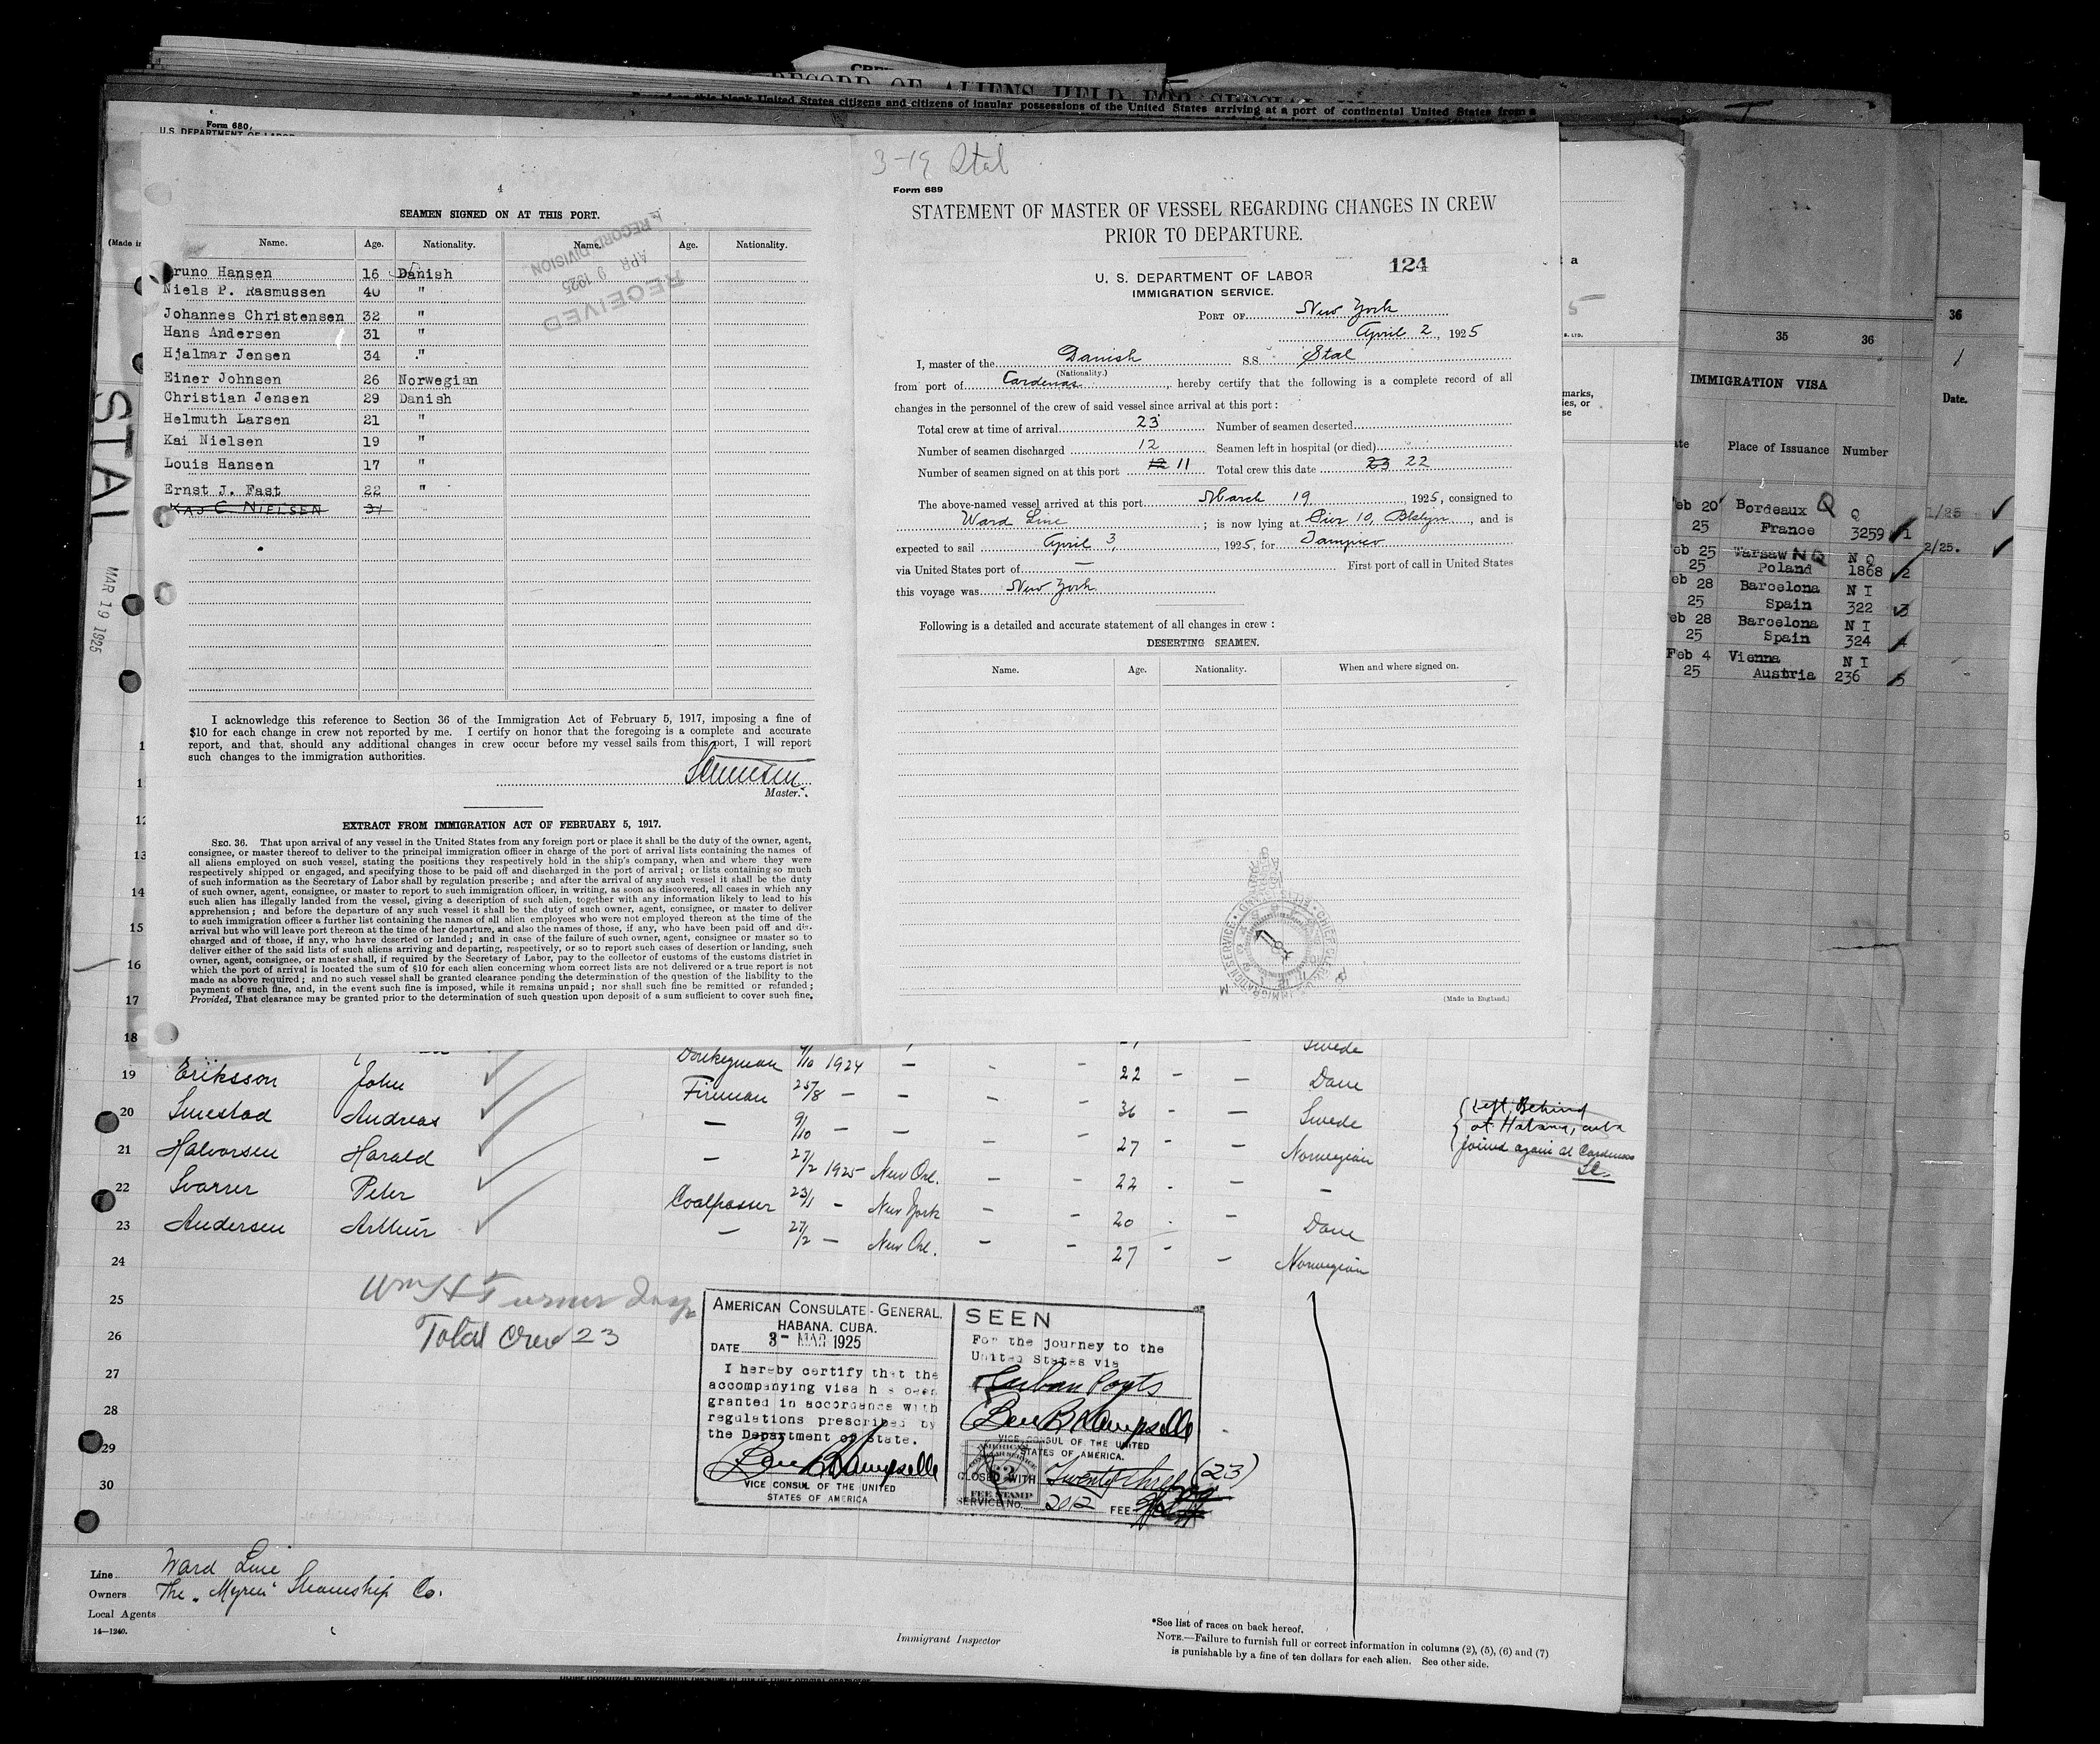 RECORD OF ALIENS HELD FOR SPECIAL
on this blank United States citizens and citizens of insular possessions of the United States arriving at a port of continental United States from a
Form 680,
U. S. DEPARTMENT OF LABOR
(Made in
STAL
MAR 19 1925
4
SEAMEN SIGNED ON AT THIS PORT.
Name. Age. Nationality. Name. Age. Nationality.
RECEIVED
APR 9 1925
RECORD DIVISION
runo Hansen 16 Danish
Niels P. Rasmussen 40 "
Johannes Christensen 32 "
Hans Andersen 31 "
Hjalmar Jensen 34 "
Einer Johnsen 26 Norwegian
Christian Jensen 29 Danish
Helmuth Larsen 21 "
Kai Nielsen 19 "
Louis Hansen 17 "
Ernst J. Fast 22 "
KAJ C NIELSEN 31
I acknowledge this reference to Section 36 of the Immigration Act of February 5, 1917, imposing a fine of
$10 for each change in crew not reported by me. I certify on honor that the foregoing is a complete and accurate
report, and that, should any additional changes in crew occur before my vessel sails from this port, I will report
such changes to the immigration authorities.
Master.
EXTRACT FROM IMMIGRATION ACT OF FEBRUARY 5, 1917.
SEC. 36. That upon arrival of any vessel in the United States from any foreign port or place it shall be the duty of the owner, agent,
consignee, or master thereof to deliver to the principal immigration officer in charge of the port of arrival lists containing the names of
all aliens employed on such vessel, stating the positions they respectively hold in the ship's company, when and where they were
respectively shipped or engaged, and specifying those to be paid off and discharged in the port of arrival; or lists containing so much
of such information as the Secretary of Labor shall by regulation prescribe; and after the arrival of any such vessel it shall be the duty
of such owner, agent, consignee, or master to report to such immigration officer, in writing, as soon as discovered, all cases in which any
such alien has illegally landed from the vessel, giving a description of such alien, together with any information likely to lead to his
apprehension; and before the departure of any such vessel it shall be the duty of such owner, agent, consignee, or master to deliver
to such immigration officer a further list containing the names of all alien employees who were not employed thereon at the time of the
arrival but who will leave port thereon at the time of her departure, and also the names of those, if any, who have been paid off and dis-
charged and of those, if any, who have deserted or landed; and in case of the failure of such owner, agent, consignee or master so to
deliver either of the said lists of such aliens arriving and departing, respectively, or so to report such cases of desertion or landing, such
owner, agent, consignee, or master shall, if required by the Secretary of Labor, pay to the collector of customs of the customs district in
which the port of arrival is located the sum of $10 for each alien concerning whom correct lists are not delivered or a true report is not
made as above required; and no such vessel shall be granted clearance pending the determination of the question of the liability to the
payment of such fine, and, in the event such fine is imposed, while it remains unpaid; nor shall such fine be remitted or refunded;
Provided, That clearance may be granted prior to the determination of such question upon deposit of a sum sufficient to cover such fine.
3-19 Stal
Form 689
STATEMENT OF MASTER OF VESSEL REGARDING CHANGES IN CREW
PRIOR TO DEPARTURE.
124
U. S. DEPARTMENT OF LABOR
IMMIGRATION SERVICE.
PORT OF New York
April 2, 1925
I, master of the Danish S.S. Stal
(Nationality.)
from port of Cardenas, hereby certify that the following is a complete record of all
changes in the personnel of the crew of said vessel since arrival at this port:
Total crew at time of arrival 23 Number of seamen deserted
Number of seamen discharged 12 Seamen left in hospital (or died)
Number of seamen signed on at this port 12 11 Total crew this date 23 22
The above-named vessel arrived at this port March 19, 1925, consigned to
Ward Line; is now lying at Pier 10, Bklyn, and is
expected to sail April 3, 1925, for Tampico
via United States port of — First port of call in United States
this voyage was New York
Following is a detailed and accurate statement of all changes in crew:
DESERTING SEAMEN.
Name. Age. Nationality. When and where signed on.
(Made in England.)
35 36
IMMIGRATION VISA
Place of Issuance Number
36
Date.
Feb 20 Bordeaux Q Q 1/25
25 France 3259 1
Feb 25 Warsaw N Q N Q 2/25.
25 Poland 1868 2
eb 28 Barcelona N I
25 Spain 322 3
eb 28 Barcelona N I
25 Spain 324 4
Feb 4 Vienna N I
25 Austria 236 5
12
13
14
15
16
17
18 Donkeyman 9/10 1924 Swede
19 Eriksson John Fireman 25/8 — 22 — Dane
20 Smestad Andreas — 9/10 — 36 — Swede
21 Halvorsen Harald — 27/2 1925 New Orl. 27 — Norwegian
22 Svarrer Peter Coalpasser 23/1 — New York 22 — —
23 Andersen Arthur — 27/2 — New Orl. 20 — Dane
24 27 — Norwegian
Left Behind
at Habana, Cuba
joined again at Cardenas
25 Wm H Turner Insp
26 Total Crew 23
27
28
29
30
AMERICAN CONSULATE-GENERAL.
HABANA. CUBA.
DATE 3- MAR 1925
I hereby certify that the
accompanying visa has been
granted in accordance with
regulations prescribed by
the Department of State.
VICE CONSUL OF THE UNITED
STATES OF AMERICA
SEEN
For the journey to the
United States via
Cuban Ports
VICE CONSUL OF THE UNITED
STATES OF AMERICA.
CLOSED WITH Twenty three (23)
FEE STAMP
SERVICE No. 2012 FEE
Line Ward Line
Owners The "Myren" Steamship Co.
Local Agents
14—1240.
Immigrant Inspector
*See list of races on back hereof.
NOTE.—Failure to furnish full or correct information in columns (2), (5), (6) and (7)
is punishable by a fine of ten dollars for each alien. See other side.